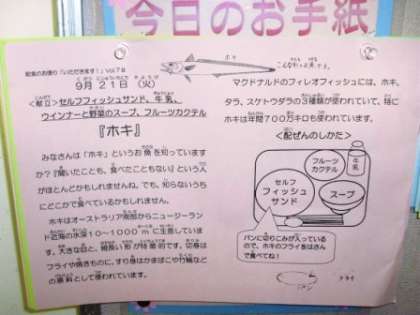 今日のお手紙
給食のお便り「いただきます！」Vol.78
9月21日（火）
ホキ
こんなおさかなです。
＜献立＞セルフフィッシュサンド、牛乳、
ウインナーと野菜のスープ、フルーツカクテル
『ホキ』
みなさんは「ホキ」というお魚を知っています
か？『聞いたことも、食べたこともない』という人
がほとんどかもしれませんね。でも、知らないうち
にどこかで食べているかもしれません。
ホキはオーストラリア南部からニュージーラン
ド近海の水深10～1000mに生息していま
す。大きな目と、細長い形が特徴的です。切身は
フライや焼きものに、すり身はかまぼこや竹輪など
の原料として使われています。
マクドナルドのフィレオフィッシュには、ホキ、
タラ、スケトウダラの3種類が使われていて、特に
ホキは年間700万キロも使われています。
＜配ぜんのしかた＞
フルーツ
カクテル
牛乳
セルフ
フィッシュ
サンド
スープ
パンに切りこみが入っている
ので、ホキのフライをはさん
で食べてね！
フライ
パン